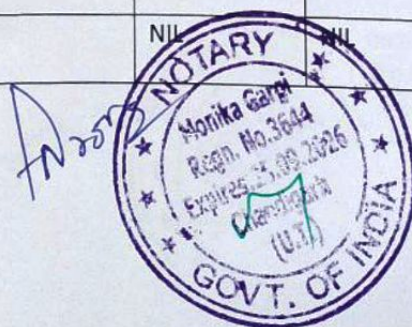 NIL NIL
NOTARY
Monika Gargi
Regn. No.3644
Expires 
Chandigarh
(U.T.)
GOVT. OF INDIA